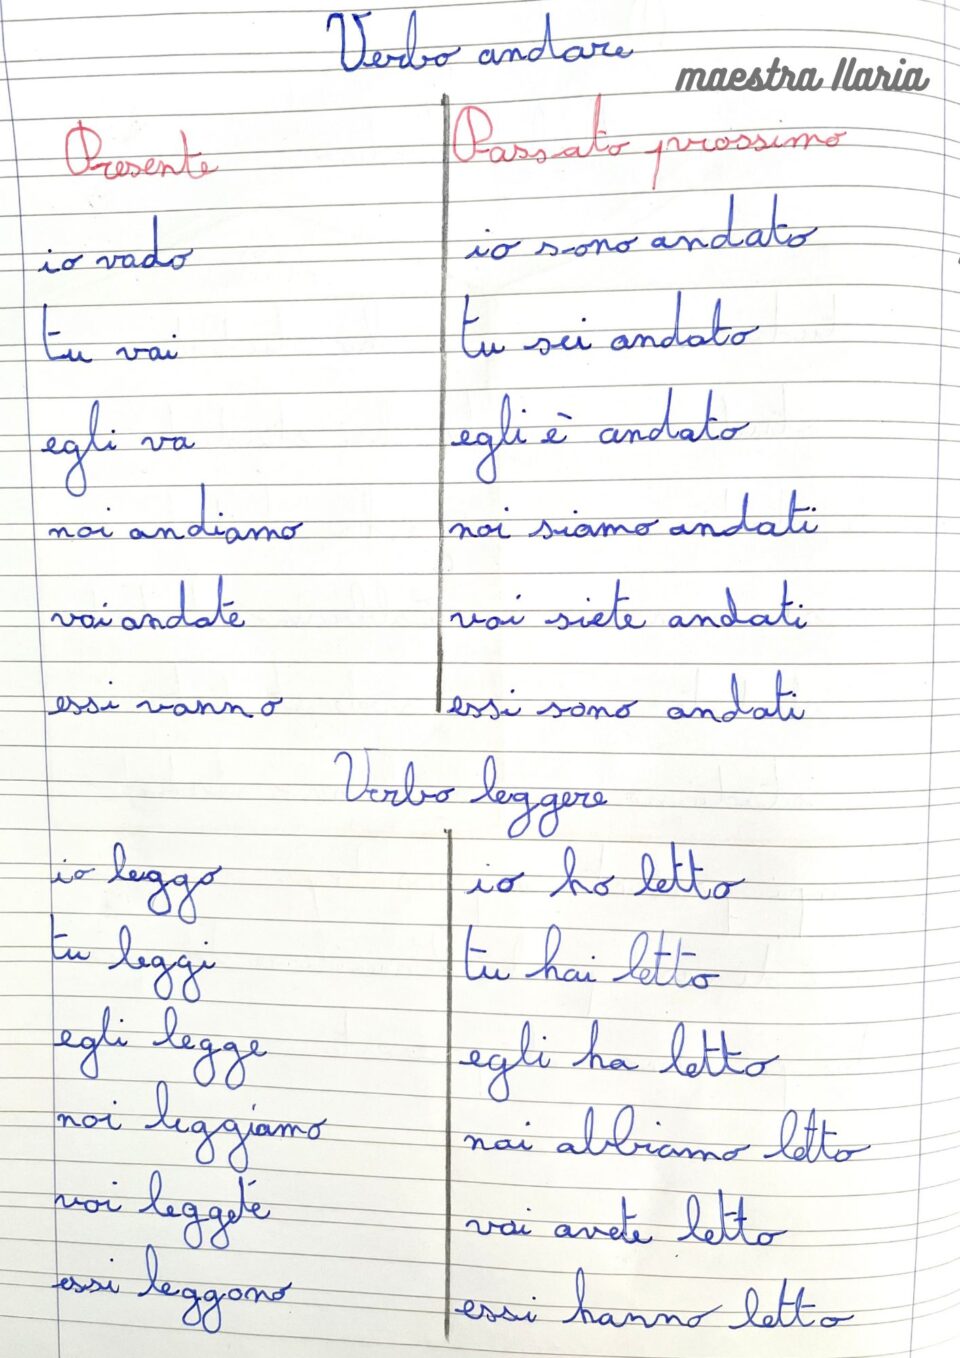 Verbo andare
maestra Ilaria
Presente Passato prossimo
io vado io sono andato
tu vai tu sei andato
egli va egli è andato
noi andiamo noi siamo andati
voi andate voi siete andati
essi vanno essi sono andati
Verbo leggere
io leggo io ho letto
tu leggi tu hai letto
egli legge egli ha letto
noi leggiamo noi abbiamo letto
voi leggete voi avete letto
essi leggono essi hanno letto